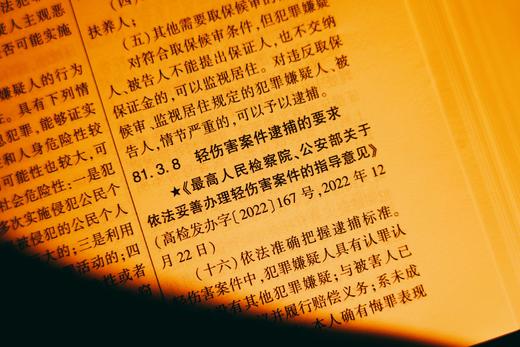 法犯罪
疑人主观恶
否可能实施
嫌疑人的行为
。具有下列情
犯罪,能够证实
和人身危险性较
可能性也较大,可
社会危险性:一是犯
多次实施侵犯公民个
被侵犯的公民个人
大的;三是利用
活动的;四
性或者
扶养人;
(五)其他需要取保候审的。
对符合取保候审条件,但犯罪嫌疑
人、被告人不能提出保证人,也不交纳
保证金的,可以监视居住。对违反取保
候审、监视居住规定的犯罪嫌疑人、被
告人,情节严重的,可以予以逮捕。
81.3.8 轻伤害案件逮捕的要求
★《最高人民检察院、公安部关于
依法妥善办理轻伤害案件的指导意见》
(高检发办字[2022]167号,2022年12
月22日)
(十六)依法准确把握逮捕标准。
轻伤害案件中,犯罪嫌疑人具有认罪认
没有其他犯罪嫌疑;与被害人已
并履行赔偿义务;系未成
本人确有悔罪表现